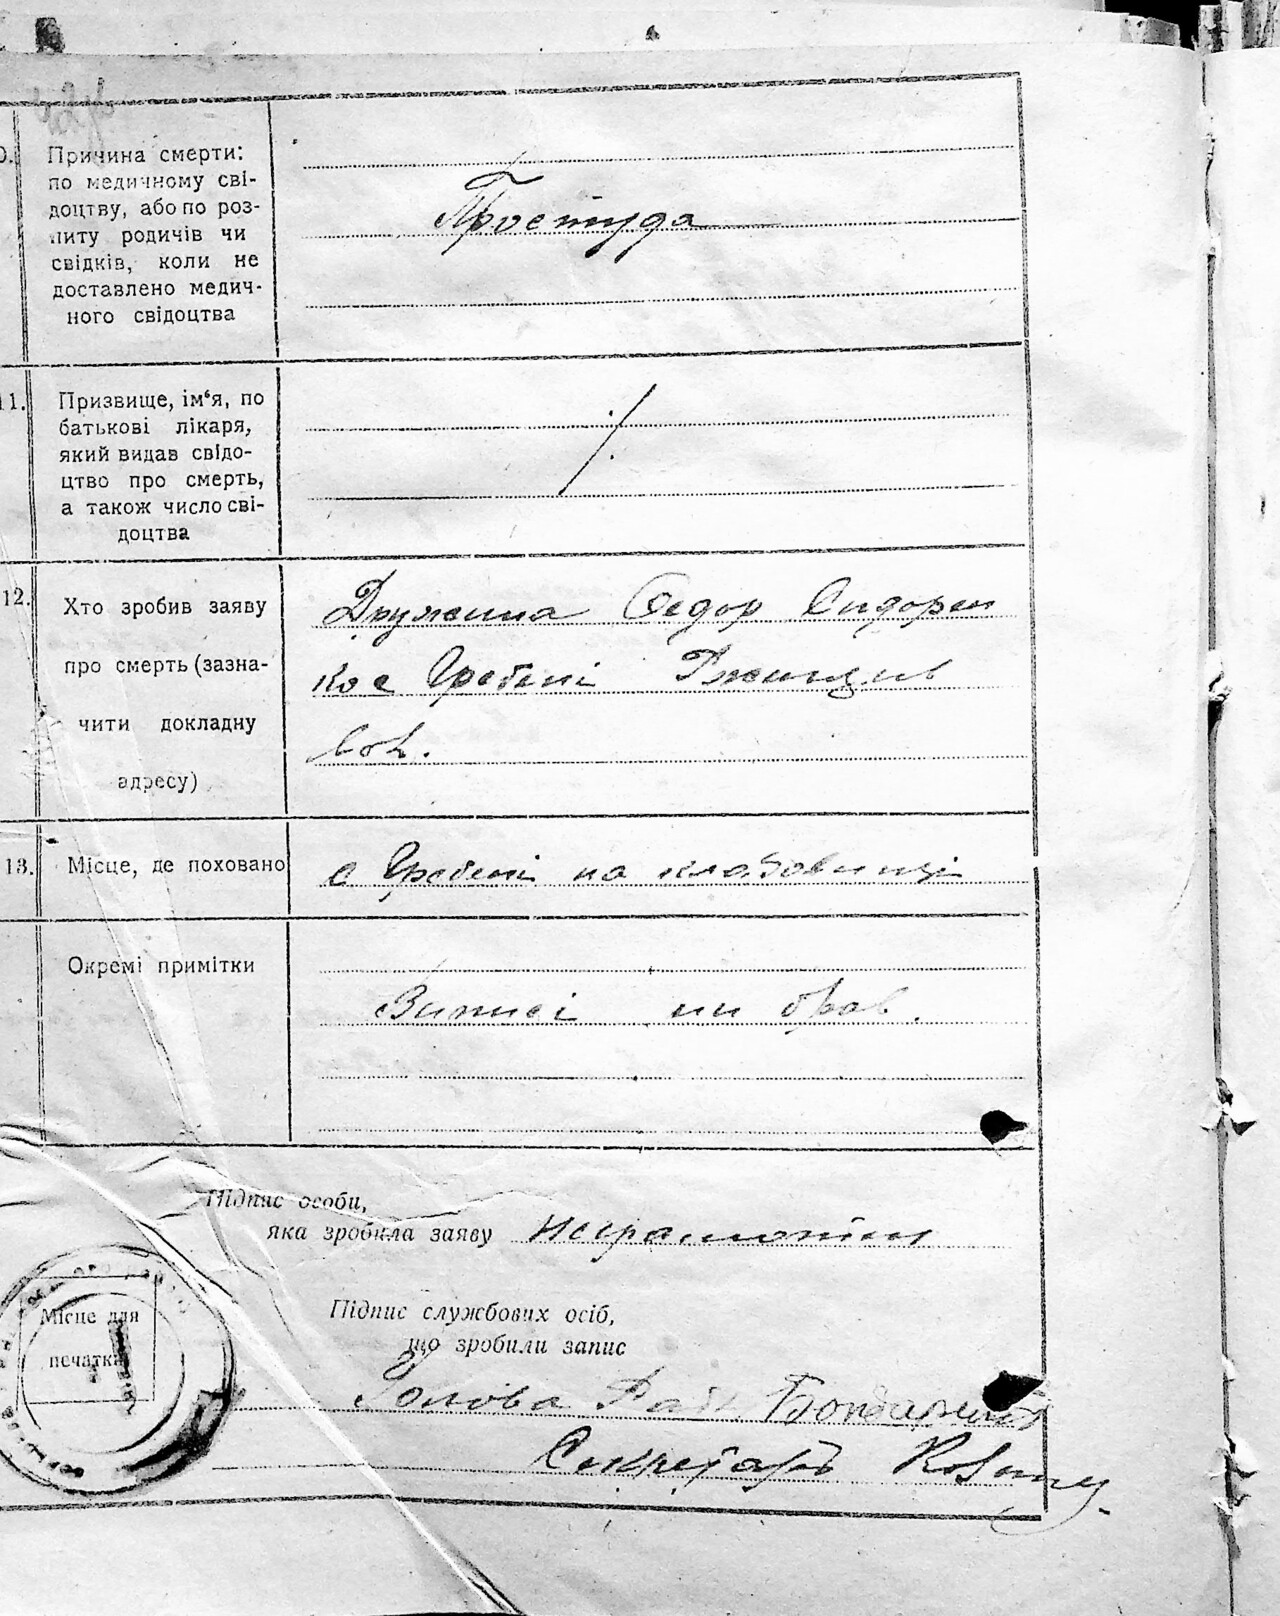 10. Причина смерти:
по медичному сві-
доцтву, або по роз-
питу родичів чи
свідків, коли не
доставлено медич-
ного свідоцтва
Простуда
11. Призвище, ім‘я, по
батькові лікаря,
який видав свідо-
цтво про смерть,
а також число сві-
доцтва
/
12. Хто зробив заяву
про смерть (зазна-
чити докладну
адресу)
Дружина Федор Сидорен
ко с Гребені Ржищив
13. Місце, де поховано
с Гребені на кладовищі
Окремі примітки
ни брав.
Підпис особи,
яка зробила заяву неграмотни
Місце для
печатки
Підпис службових осіб,
що зробили запис
Голова Бондаренко
Секретарь